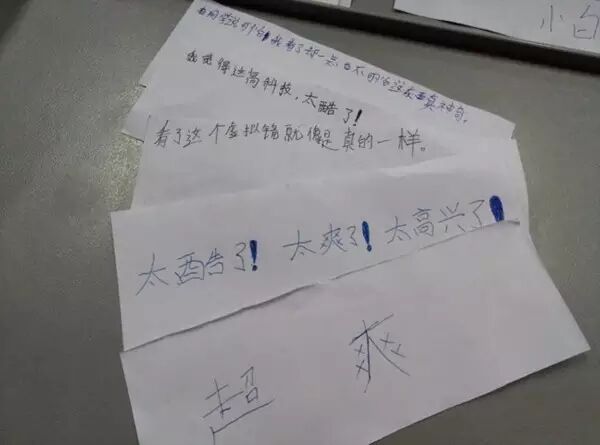 小白
有同学说可怕,我看了却一点也不可怕这东西真神奇。
我觉得这高科技,太酷了!
看了这个虚拟镜就像是真的一样。
太酷了! 太爽了! 太高兴了!
超 爽